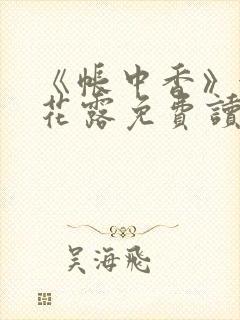 《帳中香》
花露免費讀
吳海飛